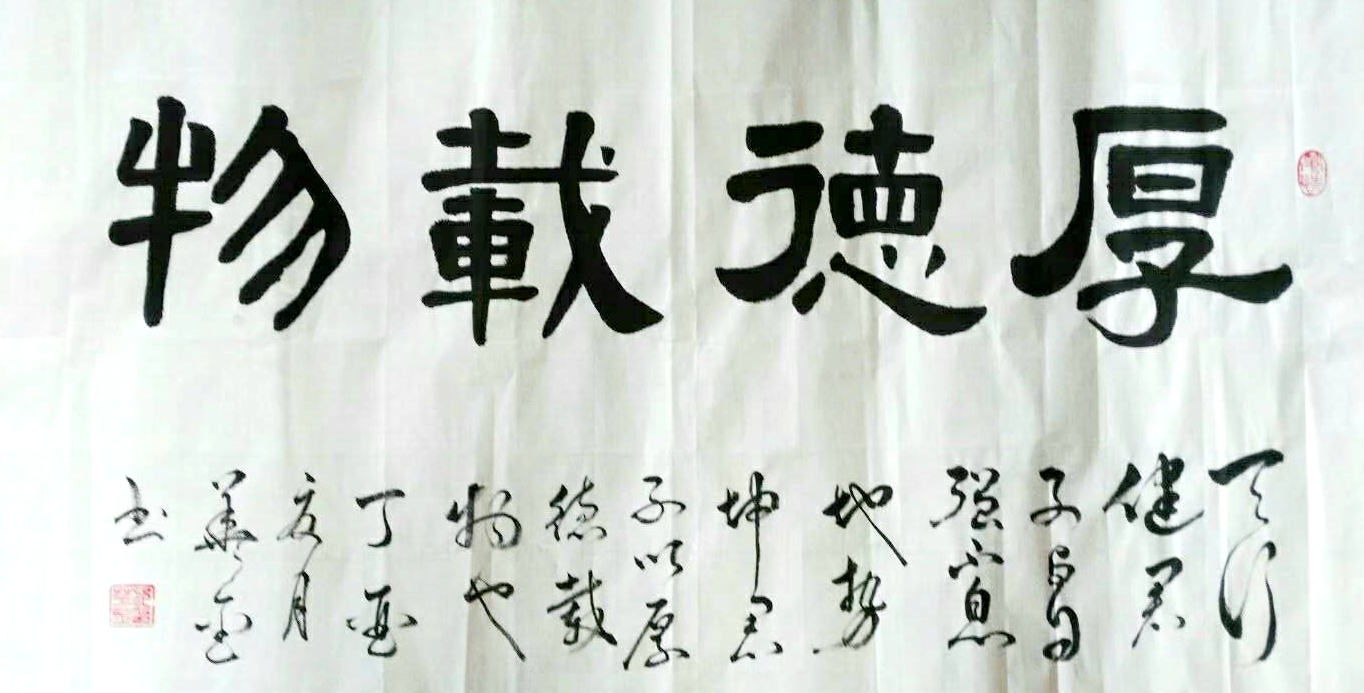 厚德載物
天行
健君
子以自
强不息
地势
坤君
子以厚
德載
物也
丁酉
夏月
书